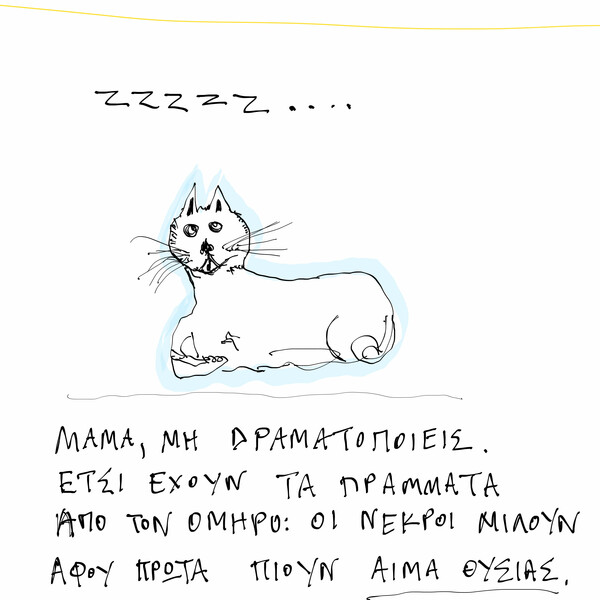 ZZZZZ....
ΜΑΜΑ, ΜΗ ΔΡΑΜΑΤΟΠΟΙΕΙΣ.
ΕΤΣΙ ΕΧΟΥΝ ΤΑ ΠΡΑΜΜΑΤΑ
ΑΠΟ ΤΟΝ ΟΜΗΡΟ: ΟΙ ΝΕΚΡΟΙ ΜΙΛΟΥΝ
ΑΦΟΥ ΠΡΩΤΑ ΠΙΟΥΝ ΑΙΜΑ ΘΥΣΙΑΣ.